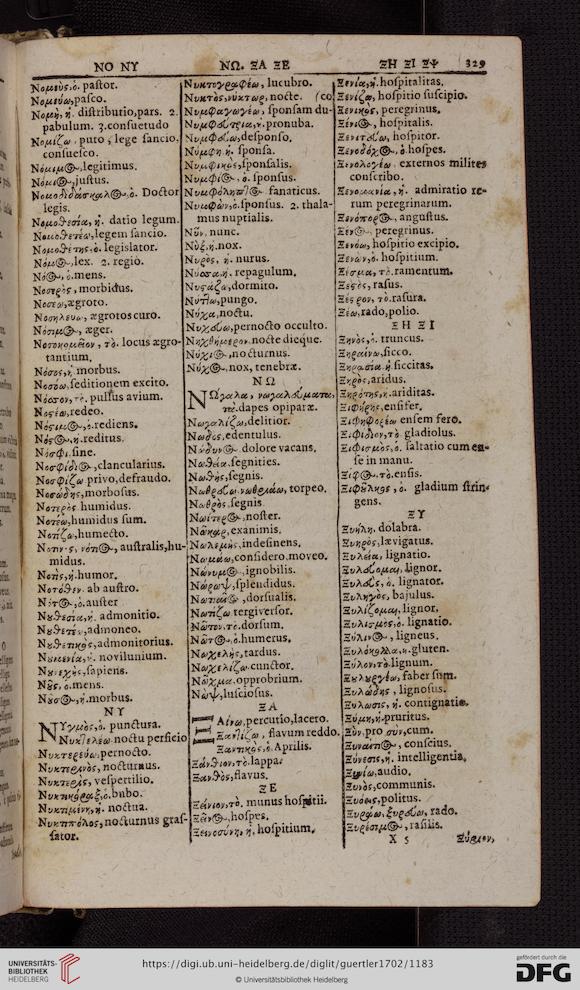 ΝΟ ΝΥ ΝΩ. ΞΑ ΞΕ ΞΗ ΞΙ ΞΨ 329
Νομεὺς,ὁ. pastor.
Νομεύω,pasco.
Νομὴ, ἡ. distributio,pars. 2.
pabulum. 3.consuetudo
Νομίζω. puto, lege sancio.
consuesco.
Νόμιμος,legitimus.
Νόμιος,justus.
Νομοδιδάσκαλος,ὁ. Doctor
legis.
Νομοθεσία, ἡ. datio legum.
Νομοθετέω,legem sancio.
Νομοθέτης,ὁ. legislator.
Νόμος,lex. 2. regio.
Νόος,ὁ.mens.
Νοσερὸς, morbidus.
Νοσέω,ægroto.
Νοσηλεύω, ægrotos curo.
Νόσιμος, æger.
Νοσοκομεῖον, τὸ. locus ægro-
tantium.
Νόσος,ἡ. morbus.
Νοσόω,seditionem excito.
Νόσσον,τὸ. pullus avium.
Νοστέω,redeo.
Νόστιμος,ὁ.rediens.
Νόστος,ἡ.reditus.
Νόσφι.sine.
Νοσφίδιος,clancularius.
Νοσφίζω privo,defraudo.
Νοσώδης,morbosus.
Νοτερὸς humidus.
Νοτέω,humidus sum.
Νοτίζω,humecto.
australis,hu-
midus.
Νοτὶς,ἡ.humor.
Νοτόθεν. ab austro.
Νότος,ὁ.auster
Νουθεσία,ἡ. admonitio.
Νουθετέω,admoneo.
Νουθετικὸς,admonitorius.
Νουμηνία,ἡ. novilunium.
Νουνεχὴς,sapiens.
Νοῦς, ὁ.mens.
Νοῦσος,ἡ.morbus.
ΝΥ
Νυγμὸς,ὁ. punctura.
noctu perficio
Νυκτερεύω,pernocto.
Νυκτερινὸς, nocturnus.
Νυκτερὶς, vespertilio.
Νυκτικόραξ,ὁ.bubo.
Νυκτιμένη,ἡ. noctua.
Νυκτιπόλος,nocturnus gras-
sator.
Νυκτογραφέω, lucubro.
Νυκτὸς,νύκτωρ, nocte. (co
Νυμφαγωγέω, sponsam du-
Νυμφεύτρια,ἡ.pronuba.
Νυμφεύω,desponso.
Νύμφη ἡ. sponsa.
Νυμφικὸς,sponsalis.
Νυμφίος. ὁ. sponsus.
Νυμφόληπτος fanaticus.
Νυμφὼν,ὁ.sponsus. 2. thala-
mus nuptialis.
Νῦν, nunc.
Νὺξ,ἡ.nox.
Νυὸς, ἡ. nurus.
Νύσσα,ἡ. repagulum.
Νυστάζω,dormito.
Νύττω,pungo.
Νύχα,noctu.
Νυχεύω,pernocto occulto.
Νυχθήμερον.nocte dieque.
Νύχιος,nocturnus.
Νύχος,nox, tenebræ.
ΝΩ
Νώγαλα, νωγαλεύματα,
τὰ.dapes opiparæ.
Νωγαλίζω,delitior.
Νωδὸς,edentulus.
Νώδυνος dolore vacans.
Νωθεία.segnities.
Νωθὴς,segnis.
Νωθρεύω.νωθριάω, torpeo.
Νωθρὸς.segnis.
Νωΐτερος,noster.
Νῶκαρ,exanimis.
Νωλεμὴς,indesinens.
Νωμάω,considero.moveo.
Νώνυμος,ignobilis.
Νώροψ,splendidus.
Νωτιαῖος,dorsualis.
Νωτίζω,tergiversor.
Νῶτον.τὸ.dorsum.
Νῶτος.ὁ.humerus.
Νωχελὴς,tardus.
Νωχελίζω.cunctor.
Νῶχμα.opprobrium.
Νώψ,lusciosus.
ΞΑ
Ξαίνω,percutio,lacero.
Ξανθίζω, flavum reddo.
Ξανθικὸς,ὁ.Aprilis.
Ξάνθιον,τὸ.lappa.
Ξανθὸς,flavus.
ΞΕ
Ξείνιον,τὸ. munus hospitii.
Ξεῖνος,hospes.
Ξεινοσύνη, ἡ, hospitium.
Ξενία,ἡ.hospitalitas.
Ξενίζω, hospitio suscipio.
Ξενικὸς, peregrinus.
Ξένιος, hospitalis.
Ξενιτεύω, hospitor.
Ξενοδόχος, ὁ.hospes.
Ξενολογέω. externos milites
conscribo.
Ξενομανία, ἡ. admiratio re-
rum peregrinarum.
angustus.
Ξένος. peregrinus.
Ξενόω, hospitio excipio.
Ξενὼν,ὁ. hospitium.
Ξέσμα, τὸ.ramentum.
Ξεστὸς, rasus.
Ξέστρον, τὸ.rasura.
Ξέω,rado,polio.
ΞΗ ΞΙ
Ξηνὸς,ὁ. truncus.
Ξηραίνω,sicco.
Ξηρασία.ἡ.siccitas.
Ξηρὸς,aridus.
Ξηρότης,ἡ.ariditas.
Ξιφήρης,ensifer.
Ξιφηφορέω ensem fero.
Ξιφίδιον,τὸ. gladiolus.
Ξιφισμὸς,ὁ. saltatio cum en-
se in manu.
Ξίφος.τὸ.ensis.
Ξιφουλκὸς, ὁ. gladium strin-
gens.
ΞΥ
Ξυήλη. dolabra.
lævigatus.
Ξυλεία, lignatio.
Ξυλεύομαι, lignor.
Ξυλεὺς, ὁ. lignator.
Ξυληγὸς, bajulus.
Ξυλίζομαι, lignor.
Ξυλισμὸς,ὁ. lignatio.
Ξύλινος, ligneus.
Ξυλόκολλα,ἡ.gluten.
Ξύλον,τὸ.lignum.
Ξυλουργέω, faber sum.
Ξυλώδης, lignosus.
Ξύλωσις, ἡ. contignatio.
Ξύμη,ἡ.pruritus.
Ξὺν.pro σὺν,cum.
conscius.
Ξύνεσις,ἡ. intelligentia.
Ξυνίω,audio.
Ξυνὸς,communis.
politus.
Ξυράω,ξυρεύω, rado.
Ξυρέσιμος, rasilis.
X 5 Ξύριον,
UNIVERSITÄTS-
BIBLIOTHEK
HEIDELBERG
https://digi.ub.uni-heidelberg.de/diglit/guertler1702/1183
© Universitätsbibliothek Heidelberg
gefördert durch die
DFG